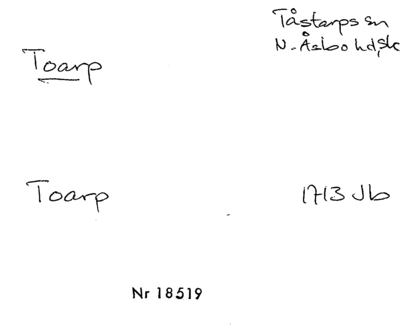 Toarp
Tåstarps sn
N. Åsbo hd, sk
Toarp
1713 Jb
Nr 18519